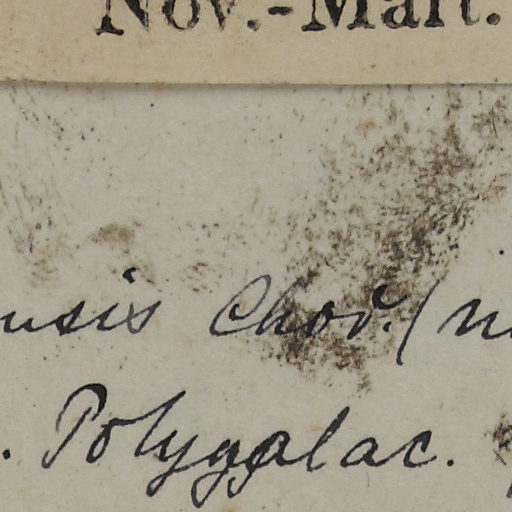 Nov.-Mart.
nsis Chod. (n
. Polygalac.